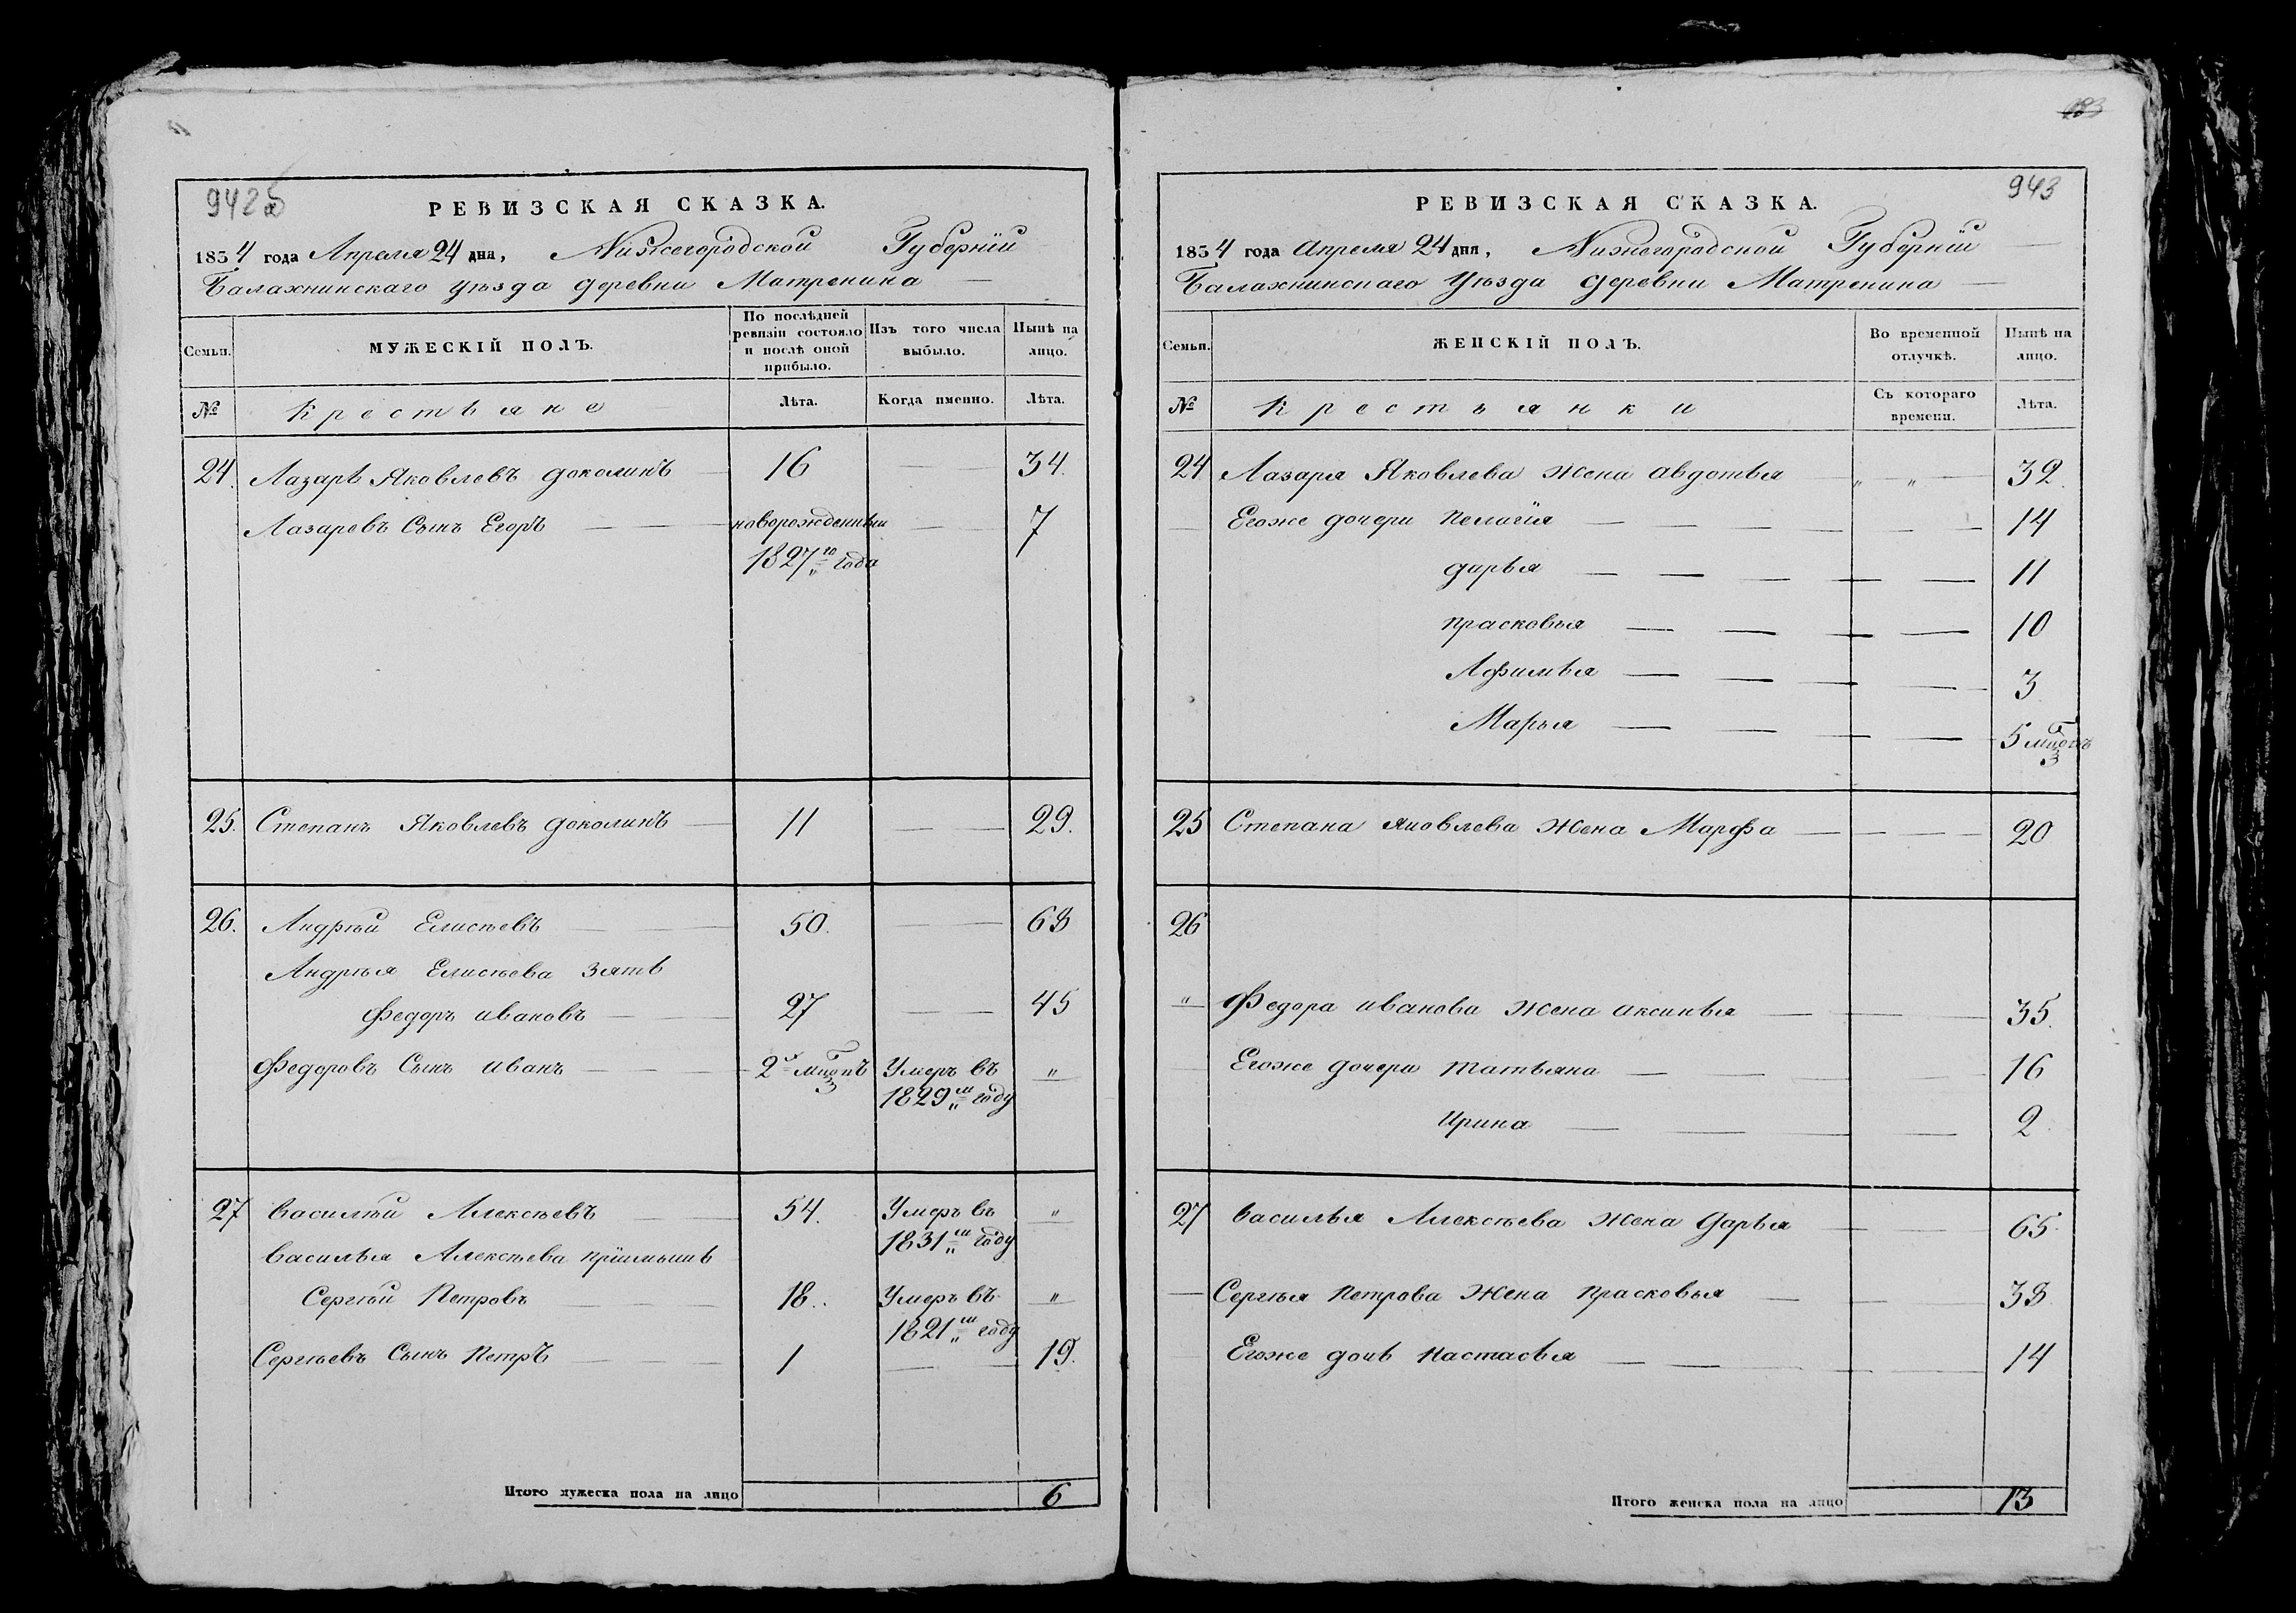 942б
РЕВИЗСКАЯ СКАЗКА.
1834 года Апреля 24 дня, Нижегородской Губернïи
Балахнинскаго уѣзда деревни Матренина
Семьи.
МУЖЕСКIЙ ПОЛЪ.
По послѣдней ревизiи состояло и послѣ оной прибыло.
Изъ того числа выбыло.
Нынѣ на лицо.
№
Крестьяне
Лѣта.
Когда именно.
Лѣта.
24. Лазарь Яковлевъ доколинъ 16 34.
Лазаревъ Сынъ Егоръ новорожденный 7
1827го года
25. Степанъ Яковлевъ доколинъ 11 29.
26. Андрѣй Елисѣевъ 50. 68
Андрѣя Елисѣева зять
Федоръ ивановъ 27 45
Федоровъ Сынъ иванъ 2х мцовъ Умеръ въ "
1829м году
27 Василѣй Алексѣевъ 54. Умеръ въ "
1831м году
Василья Алексѣева прïимышь
Сергѣй Петровъ 18. Умеръ въ "
1821м году
Сергѣевъ Сынъ Петръ 1 19.
Итого мужеска пола на лицо 6
943
РЕВИЗСКАЯ СКАЗКА.
1834 года апреля 24 дня, Нижегородской Губернïи
Балахнинскаго Уѣзда деревни Матренина
Семьи.
ЖЕНСКIЙ ПОЛЪ.
Во временной отлучкѣ.
Нынѣ на лицо.
№
Крестьянки
Съ котораго времени.
Лѣта.
24 Лазаря Яковлева жена авдотья " " 32.
Егоже дочери пелагïя 14
дарья 11
прасковья 10
Афимья 3
Марья 5 мцовъ
25 Степана яковлева жена Марфа 20
26
" Федора иванова жена аксинья 35.
Егоже дочери татьяна 16
ирина 2
27 Василья Алексѣева жена дарья 65.
Сергѣя петрова жена прасковья 38
Егоже дочь настасья 14
Итого женска пола на лицо 13